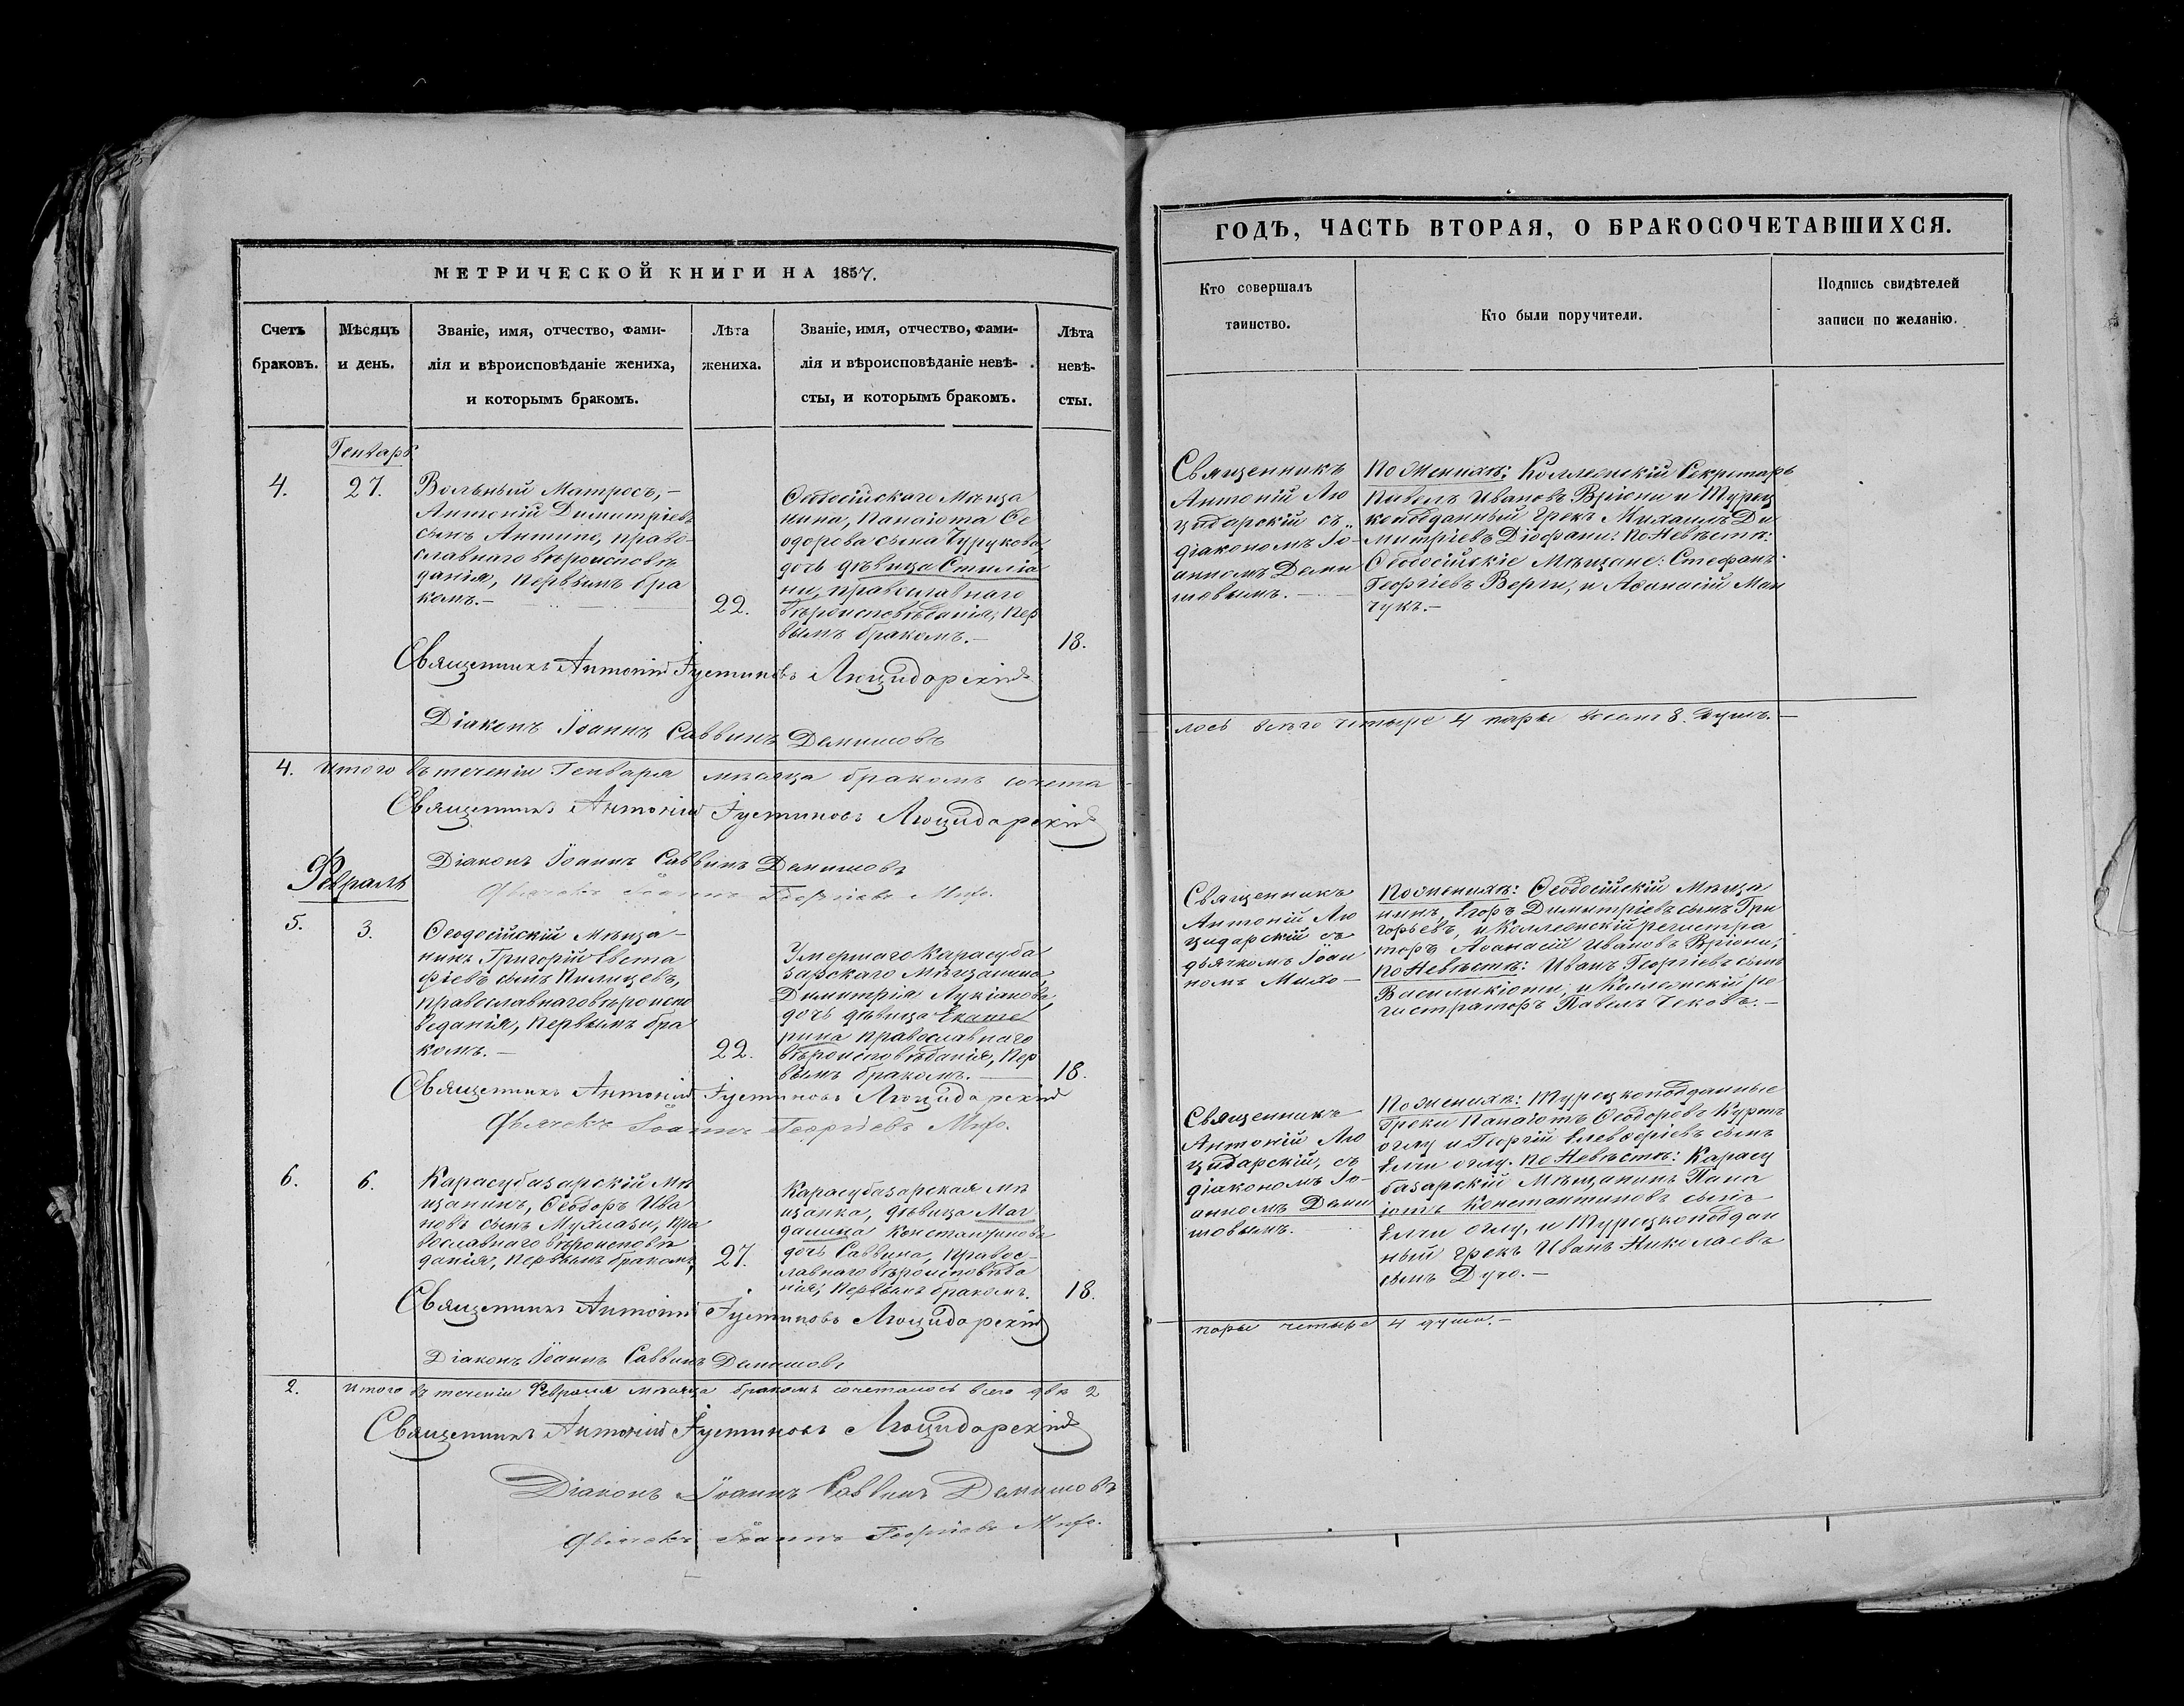 МЕТРИЧЕСКОЙ КНИГИ НА 1857.
Счетъ браковъ.
Мѣсяцъ и день.
Званіе, имя, отчество, фами-
лія и вѣроисповѣданіе жениха,
и которымъ бракомъ.
Лѣта жениха.
Званіе, имя, отчество, фами-
лія и вѣроисповѣданіе невѣ-
сты, и которымъ бракомъ.
Лѣта невѣ-
сты.
Генварь
4.
27.
Вольный Матросъ,—
Антоній Димитріевъ
сынъ Антипе, право-
славнаго вѣроисповѣ
данія, первымъ бра
комъ.—
22.
Ѳеодосійскаго Мѣща
нина, Панаіота Ѳе
одорова сына Чурукова,
дочь дѣвица Стиліа
ни, православнаго
вѣроисповѣданія, пер
вымъ бракомъ.—
18.
Священникъ Антоній Іустиновъ Люцидарскій
Діаконъ Іоаннъ Саввинъ Демишовъ
4. Итого въ теченіи Генваря мѣсяца бракомъ сочета
Священникъ Антоній Іустиновъ Люцидарскій
Діаконъ Іоаннъ Саввинъ Демишовъ
Дьячекъ Іоаннъ Георгіевъ
Февраль
5.
3.
Ѳеодосійскій Мѣща-
нинъ Григорій Евста
фіевъ сынъ Пилищевъ,
православнаго вѣроиспо
веданія, первымъ бра
комъ.—
22.
Умершаго Карасуба
зарскаго Мѣщанина
Димитрія Лукіанова,
дочь дѣвица Екате
рина православнаго
вѣроисповѣданія, пер
вымъ бракомъ.—
18.
Священникъ Антоній Іустиновъ Люцидарскій
Дьячекъ Іоаннъ Георгіевъ
6.
6.
Карасубазарскій Мѣ
щанинъ, Ѳеодоръ Ива
новъ сынъ Муялази, пра
вославнаго вѣроисповѣ
данія, первымъ бракомъ,
27.
Карасубазарская мѣ
щанка, дѣвица Маг
далина Константинова
дочь Саввина, правос-
лавнаго вѣроисповѣда
нія, первымъ бракомъ.
18.
Священникъ Антоній Іустиновъ Люцидарскій
Діаконъ Іоаннъ Саввинъ Демишовъ
2. Итого въ теченіи Февраля мѣсяца бракомъ сочеталось всего двѣ 2
Священникъ Антоній Іустиновъ Люцидарскій
Діаконъ Іоаннъ Саввинъ Демишовъ
Дьячекъ Іоаннъ Георгіевъ
ГОДЪ, ЧАСТЬ ВТОРАЯ, О БРАКОСОЧЕТАВШИХСЯ.
Кто совершалъ
таинство.
Кто были поручители.
Подпись свидѣтелей
записи по желанію.
Священникъ
Антоній Лю
цидарскій съ
діакономъ Іо-
анномъ Деми
шовымъ.—
По Женихѣ: Коллежскій Секретарь
Павелъ Ивановъ Вріони и Турец
коподданный Грекъ Михаилъ Ди
митріевъ Діофани: По Невѣстѣ:
Ѳеодосійскіе Мѣщане: Стефанъ
Георгіевъ Верги, и Аѳанасій Ман
чукъ.—
лось всего четыре 4 пары восемь 8. душъ.—
Священникъ
Антоній Лю
цидарскій съ
дьячкомъ Іоан
номъ
По женихѣ: Ѳеодосійскій Мѣща
нинъ, Егоръ Димитріевъ сынъ Гри
горьевъ, и Коллежскій регистра
торъ Аѳанасій Ивановъ Вріони;
по Невѣстѣ: Иванъ Георгіевъ сынъ
Василикіоти, и Коллежскій ре
гистраторъ Павелъ Чековъ.—
Священникъ
Антоній Лю
цидарскій, съ
діакономъ Іо-
анномъ Деми
шовымъ.
По женихѣ: Турецкоподданные
Греки Панаіотъ Ѳеодоровъ Куртъ
оглу и Георгій Елевѳеріевъ сынъ
Елчи оглу. По Невѣстѣ: Карасу
базарскій Мѣщанинъ Пана
іотъ Константиновъ сынъ
Елчи оглу, и Турецкоподдан
ный Грекъ Иванъ Николаевъ
сынъ Дучо.—
пары четыре 4 души.—